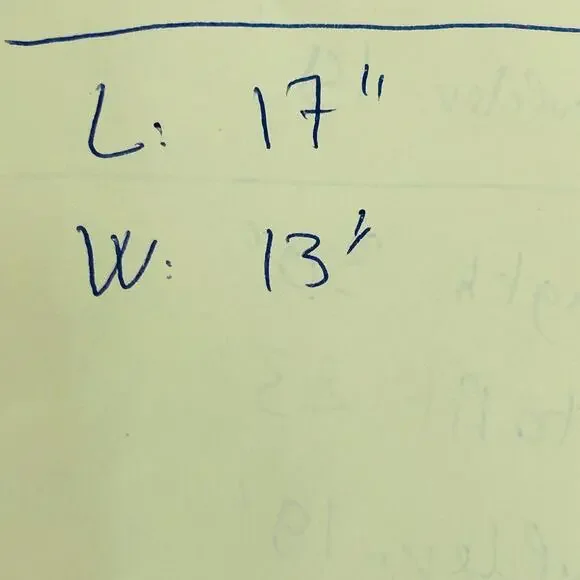 L: 17"
W: 13"